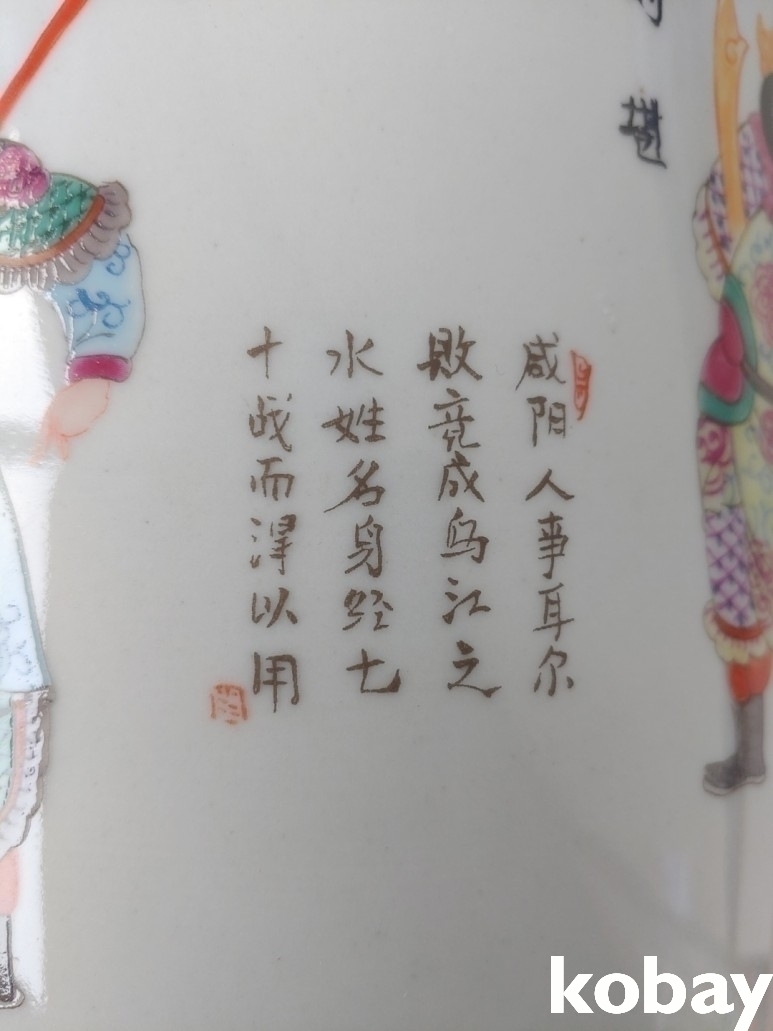 咸阳人事耳尔
敗竞成乌江之
水姓名身经七
十战而淂以用
kobay